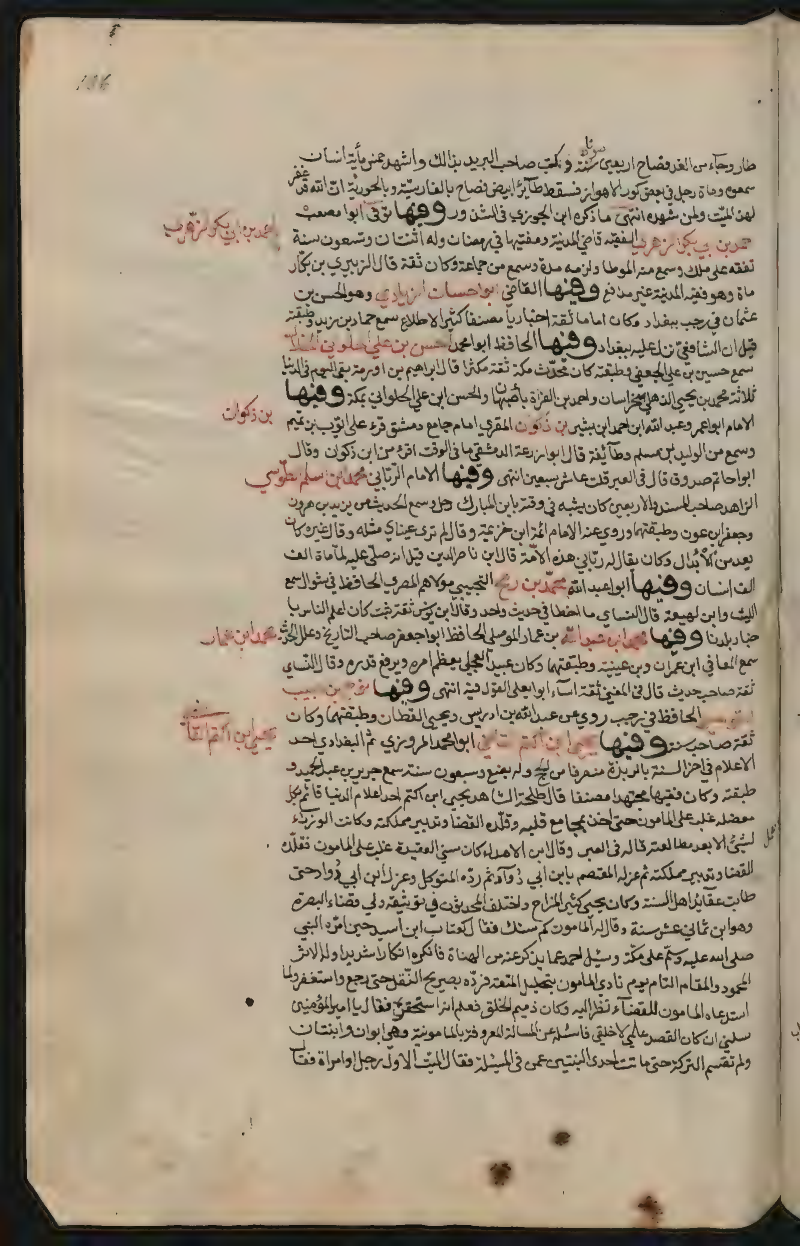 طار وجاء من الغد فصاح اربعين مرة وكتب صاحب البريد بذالك واشهد خمسمأية انسان
سمعوه ومات رجل في بعض كور الاهواز فسقط طائر ابيض فصاح بالفارسية وبالحورية ان الله قد غفر
لهذا الميت ولمن شهده انتهى ما ذكره ابن الجوزي في الشذور وفيها توفى ابو مصعب
احمد بن ابي بكر الزهري
احمد بن ابي بكر الزهري الفقيه قاضي المدينة ومفتيها في رمضان وله اثنتان وتسعون سنة
تفقه على ملك وسمع منه الموطا ولزمه مدة وسمع من جماعة وكان ثقة قال الزبيري بن بكار
مات وهو فقيه المدينة غير مدافع وفيها القاضي ابو حسان الزيادي وهو الحسن بن
عثمان في رجب ببغداد وكان اماما ثقة اخباريا مصنفا كثير الاطلاع سمع حماد بن زيد وطبقته
قيل ان الشافعي نزل عليه ببغداد وفيها الحافظ ابو محمد الحسن بن علي الحلواني الخلال
سمع حسين بن علي الجعفي وطبقته كان محدث مكة ثقة مكثرا قال ابراهيم بن اورمة بقى اليوم في الدنيا
ثلاثة محمد بن يحيى الذهلي بخراسان واحمد بن الفراة باصبهان والحسن ابن علي الحلواني بمكة وفيها
بن ذكوان
الامام ابو عمر وعبد الله ابن احمد ابن بشير بن ذكوان المقري امام جامع دمشق قرء على ايوب بن تميم
وسمع من الوليد ابن مسلم وطائفة قال ابو زرعة الدمشقي ما في الوقت اقرئ من ابن ذكوان وقال
ابو حاتم صدوق قال في العبر قلت عاش سبعين انتهى وفيها الامام الرباني محمد ابن اسلم الطوسي
الزاهد صاحب المسند والاربعين كان يشبه في وقته بابن المبارك رحل وسمع الحديث من يزيد بن هرون
وجعفر ابن عون وطبقتهما وروى عنه الامام ائمة ابن خزيمة وقال لم ترى عيناي مثله وقال غيره كان
يعد من الابدال وكان يقال له رباني هذه الامة قال ابن ناصر الدين قيل انه صلى عليه لما مات الف
الف انسان وفيها ابو عبد الله محمد بن رمح التجيبي مولاهم المصري الحافظ في شوال سمع
الليث وابن لهيعة قال النساي ما اخطا في حديث واحد وقال ابن يونس ثقة ثبت كان اعلم الناس با
محمد ابن عمار
خبار بلدنا وفيها محمد ابن عبد الله بن عمار الموصلي الحافظ ابو جعفر صاحب التاريخ وعلل الحديث
سمع المعافى ابن عمران وبن عيينة وطبقتهما وكان عبيد العجلي يعظم امره ويرفع قدره وقال النساي
ثقة صاحب حديث قال في المغنى ثقة اساء ابو يعلى القول فيه انتهى وفيها نوح بن حبيب
القومسي الحافظ في رجب روى عن عبد الله بن ادريس ويحيى القطان وطبقتهما وكان
يحيى ابن اكثم القا
ثقة صاحب سنة وفيها يحيى ابن اكثم القاضي ابو محمد المروزي ثم البغدادي احد
الاعلام في اخر السنة بالربذة منصرفا من الحج وله بضع وسبعون سنة سمع جرير بن عبد الحميد و
طبقته وكان فقيها مجتهدا مصنفا قال طلحة الشاهد يحيى ابن اكثم احد اعلام الدنيا قائم بكل
معضلة غلب على المامون حتى اخذ بمجامع قلبه وقلده القضا وتدبير مملكته وكانت الوزراء
لا تعمل شيئ الا بعد مطالعته قاله في العبر وقال ابن الاهدل كان سني العقيدة غلب على المامون تقلده
القضا وتدبير مملكته ثم عزله المعتصم بابن ابي دوآد ثم رده المتوكل وعزل ابن ابي دواد حتى
طابت عقائد اهل السنة وكان يحيى كثير المزاح واختلف المحدثون في توثيقه ولي قضاء البصرة
وهو ابن ثماني عشر سنة وقال له المامون كم سنك فقال كعتاب ابن اسيد حين امره النبي
صلى الله عليه وسلم على مكة وسئل احمد عما يذكر عنه من الهناة فانكره انكارا شديدا وله الاثر
المحمود والمقام التام يوم نادى المامون بتحليل المتعة فرده بصريح النقل حتى رجع واستغفر ولما
استدعاه المامون للقضآء نظر اليه وكان ذميم الخلق فعلم انه استحقره فقال يا امير المؤمنين
سلني ان كان القصد علمي لا خلقي فاسئله عن المسالة المعروفة بالمامونية وهي ابوان وابنتان
ولم تقسم التركة حتى ماتت احدى البنتين عمن في المسئلة فقال الميت الاول رجل او امراة فقا